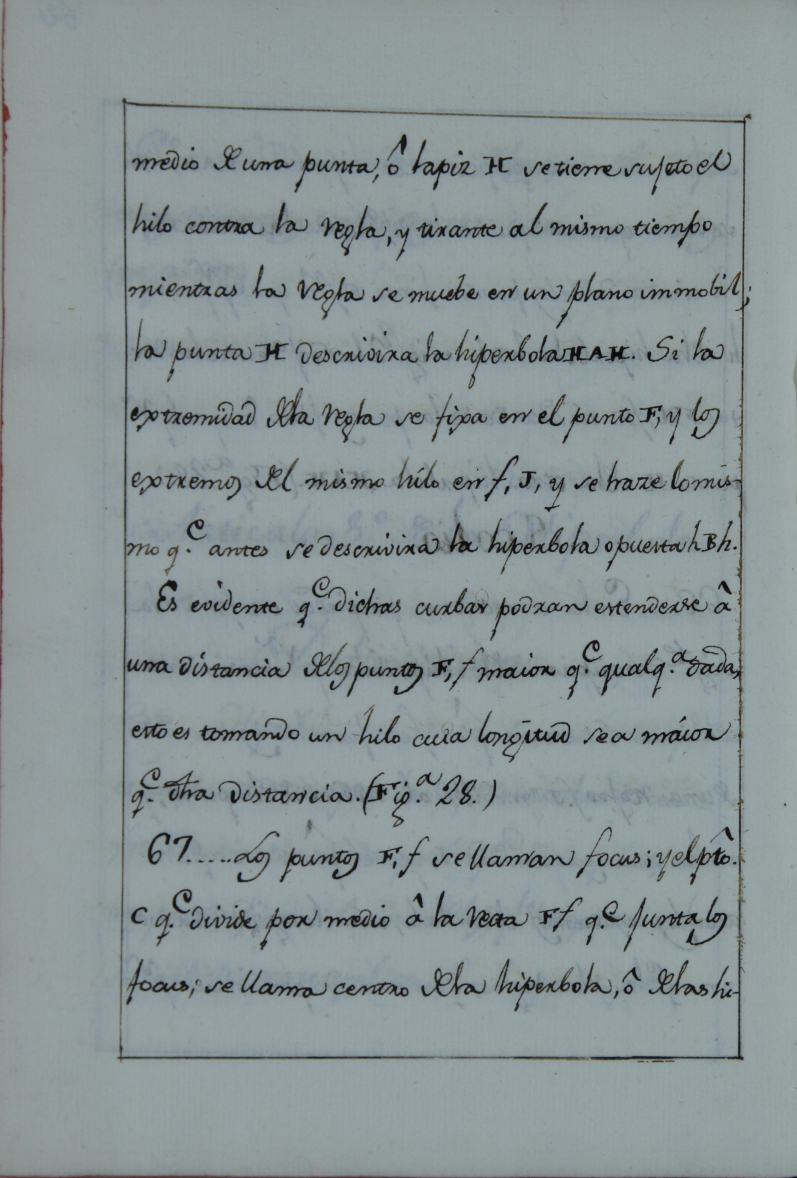 medio de una punta, ô lapiz H se tiene sujeto el
hilo contra la regla, y tirante al mismo tiempo
mientras la regla se muebe en un plano immobil;
la punta H descrivira la hiperbola HAH. Si la
extremidad dela regla se fixa en el punto F, y los
extremos del mismo hilo en f, J, y se haze lo mis-
mo q.e antes se descrivirá la hiperbola opuesta hBh.
Es evidente q.e dichas curbas podran estenderse â
una distancia delos puntos F, f maior q.e qualq.a dada,
esto es tomando un hilo cuia longitud sea maior
q.e dha distancia. (Fig.a 28.)
67.....Los puntos F, f se llaman focus; y el pto.
C q.e divide por medio â la recta Ff q.e junta los
focus; se llama centro dela hiperbola, ô delas hi-